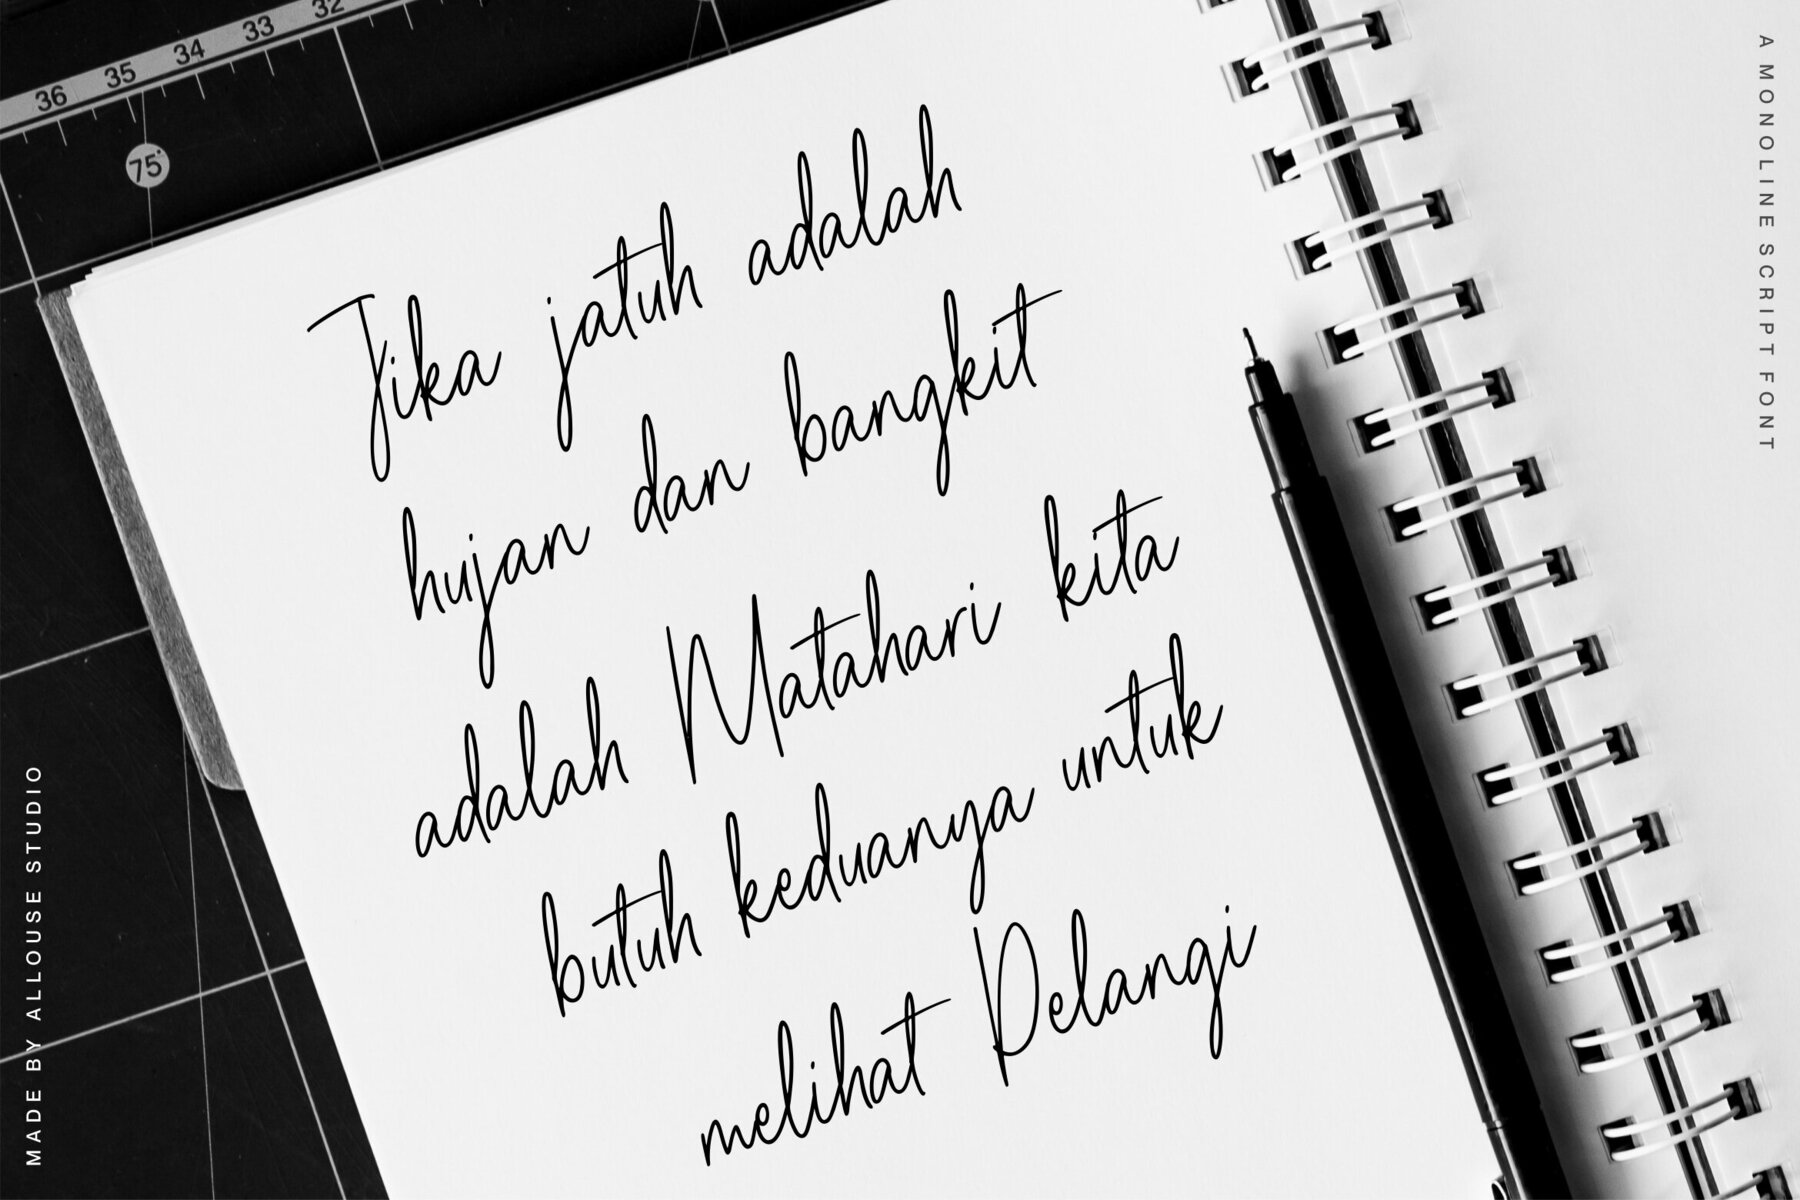 36 35 34 33 32
75°
Jika jatuh adalah
hujan dan bangkit
adalah Matahari kita
butuh keduanya untuk
melihat Pelangi
MADE BY ALLOUSE STUDIO
A MONOLINE SCRIPT FONT